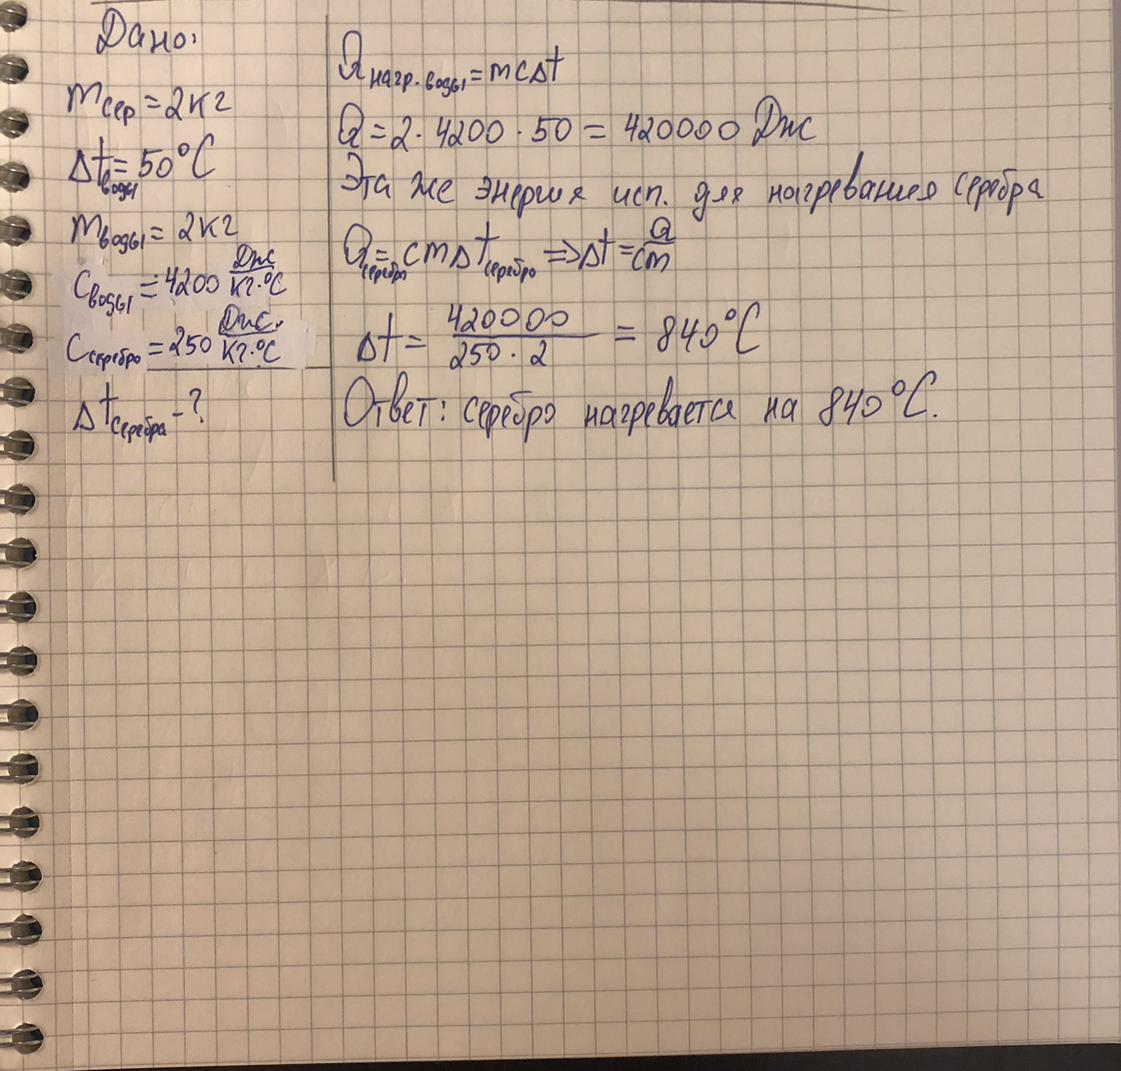 Дано:
m сер = 2кг
Δt воды = 50°C
m воды = 2кг
C воды = 4200 Дж/кг·°C
C серебро = 250 Дж/кг·°C
Δt серебра - ?
Q нагр. воды = mcΔt
Q = 2 · 4200 · 50 = 420000 Дж
Эта же энергия исп. для нагревания серебра
Q серебро = cmΔt серебро => Δt = Q/cm
Δt = 420000/250 · 2 = 840°C
Ответ: серебро нагревается на 840°C.